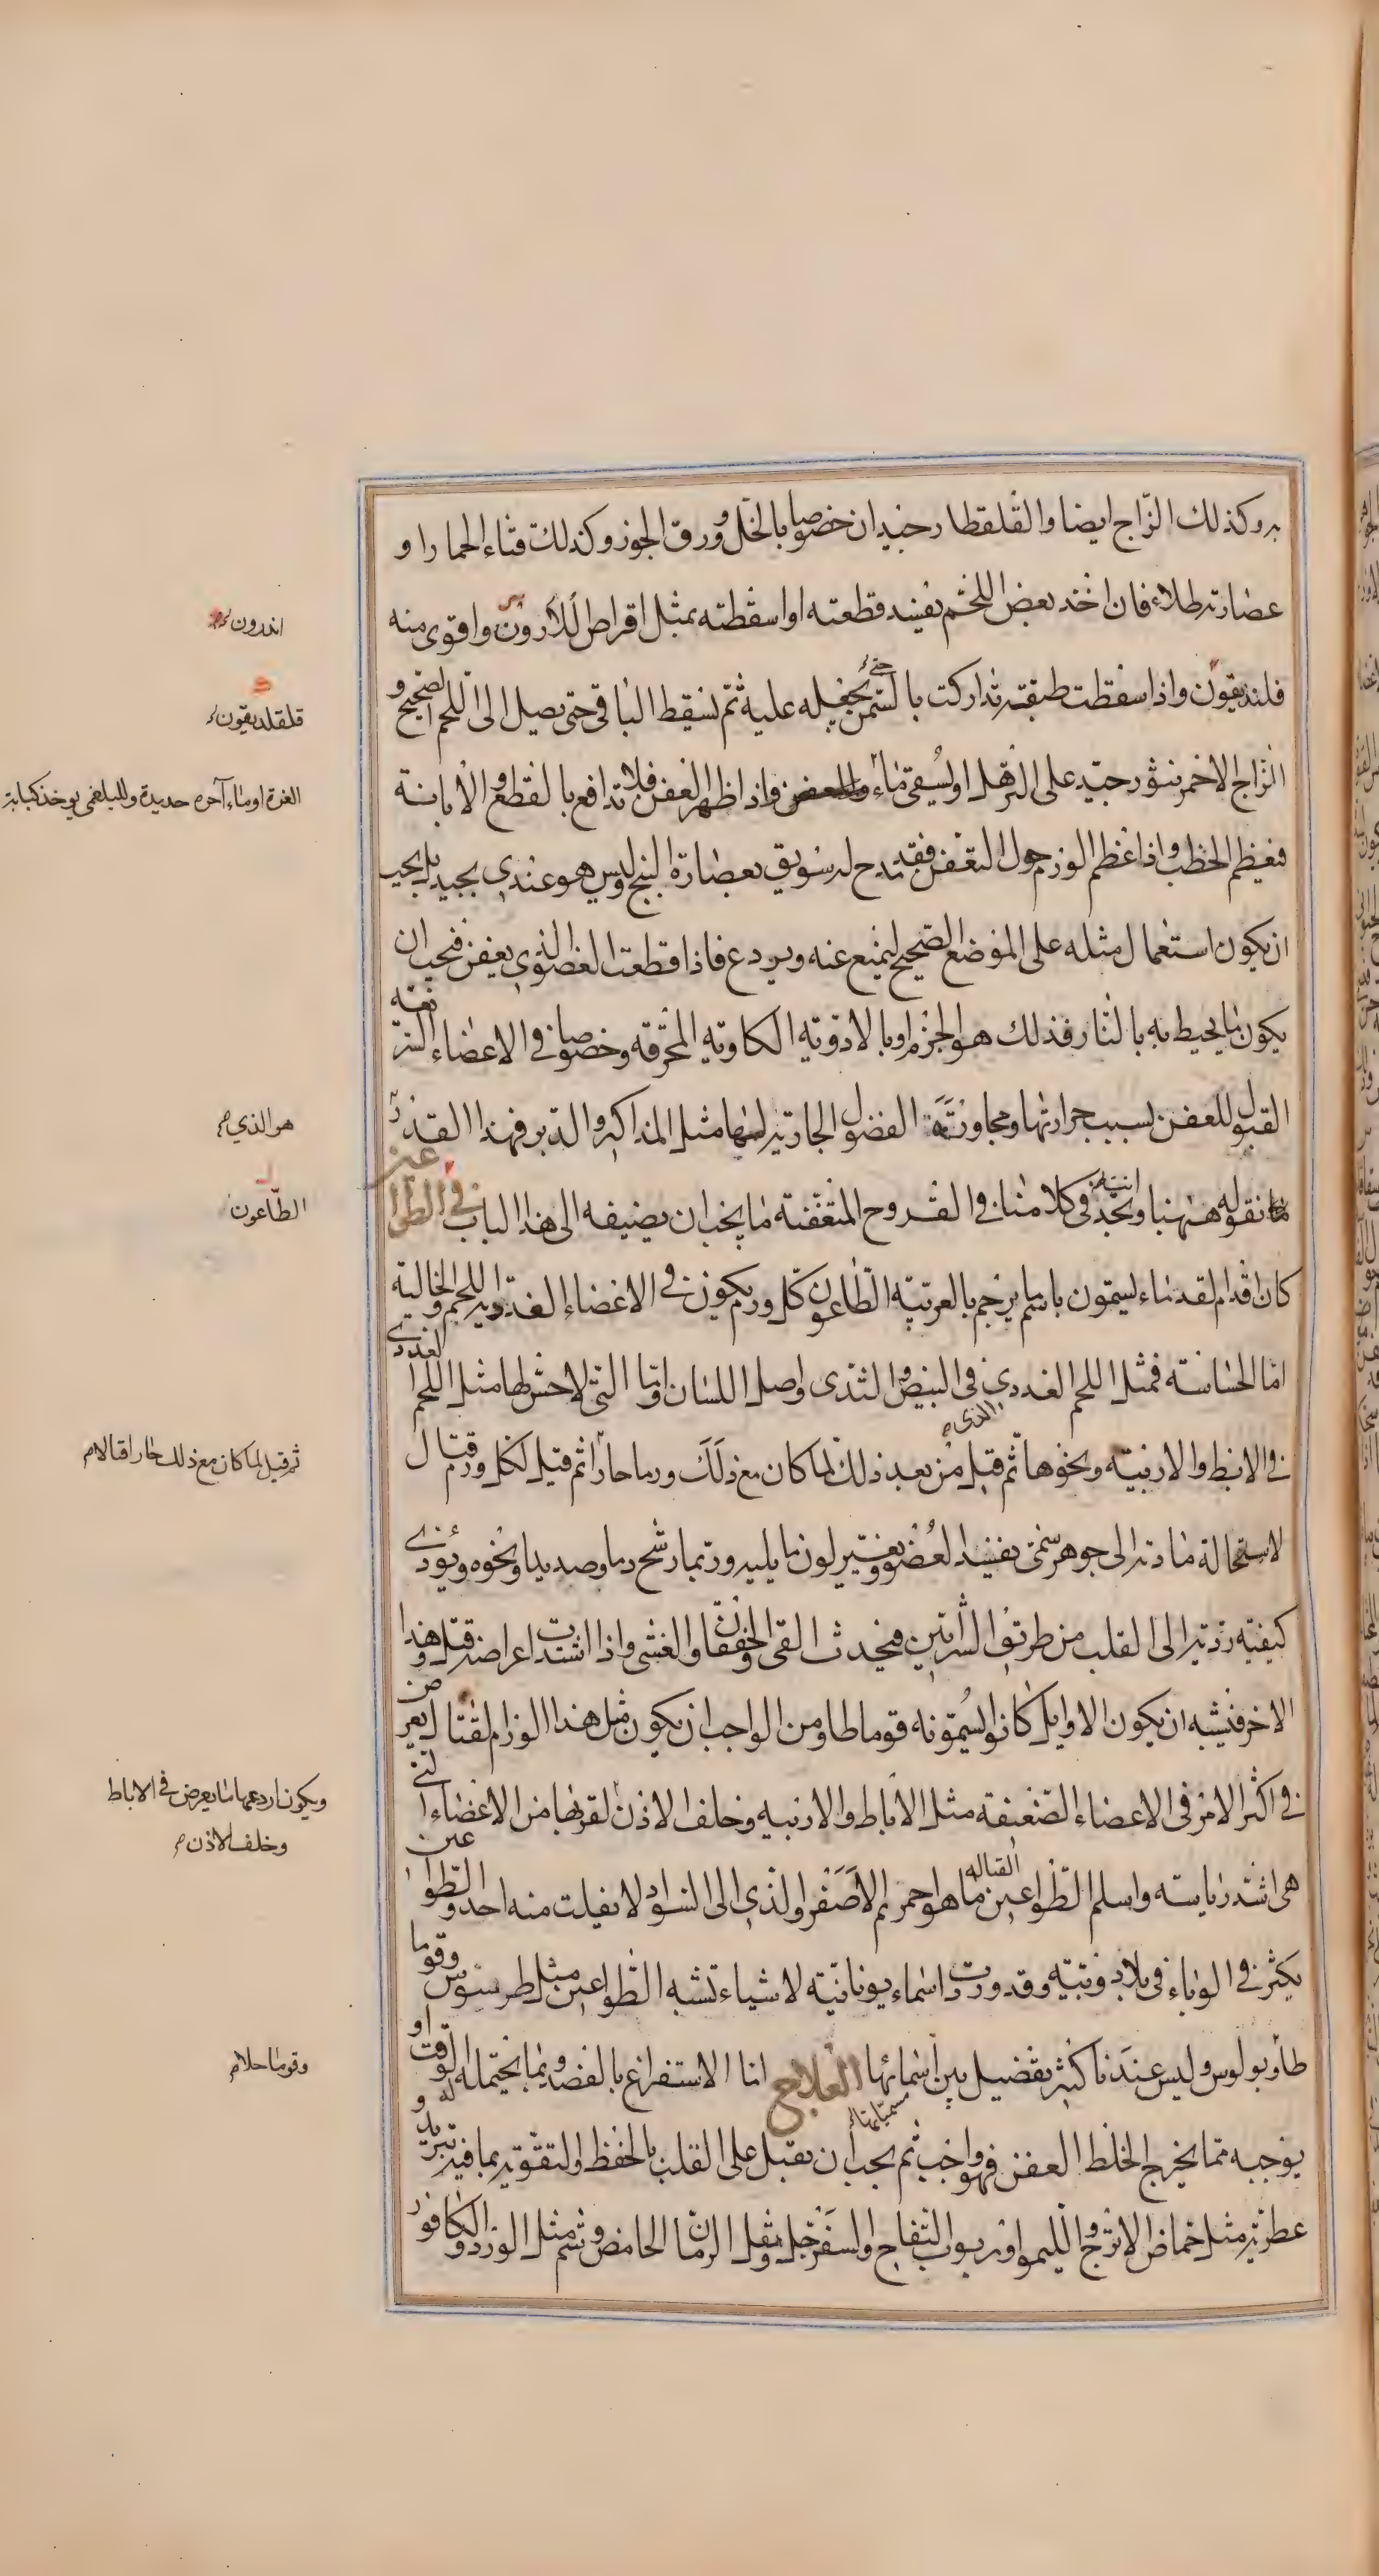 به وكذلك الزاج ايضا والقلقطار جيدان خصوصا بالخل وورق الجوز وكذلك قثاء الحمار او
عصارته طلاء فان اخذ بعض اللحم يفسد قطعته او اسقطته بمثل اقراص الادرون واقوى منه
فلنديقون واذا سقطت طبقته تداركت بالسمن تجعله عليه ثم تسقط الباقي حتى يصل الى اللحم الصحيح و
الزاج الاحمر نثور جيد على الترهل او يسقى ماء والعفن واذا ظهر العفن فلا تدافع بالقطع والابانة
فيعظم الخطب واذا عظم الورم حول التعفن فقد مدح له سويق بعصارة البنج وليس هو عندي بجيد بل يجب
ان يكون استعمال مثله على الموضع الصحيح ليمنع عنه ويردع فاذا قطعت العضو الذي يعفن فيجب ان
يكون ما يحيط به بالنار فذلك هو الحزم او بالادوية الكاوية المحرقة وخصوصا في الاعضاء السريعة
القبول للعفن بسبب حرارتها ومجاورة الفضول الجارية لها مثل المذاكير والدبر فهذا القدر
ما نقوله ههنا وتجد في كلامنا في القروح المتعفنة ما يجب ان يضيفه الى هذا الباب في الطواعين
كان اقدام القدماء يسمون باسم ما يترجم بالعربية الطاعون كل ورم يكون في الاعضاء الغددية اللحم والخالية
اما الحساسة فمثل اللحم الغددي في البيض والثدي واصل اللسان واما التي لا حس لها مثل اللحم الغددي
الذي
في الابط والاربية ونحوها ثم قيل من بعد ذلك لما كان مع ذلك ورما حارا ثم قيل لكل ورم قتال
لاستحالة مادته الى جوهر سمي يفسد العضو ويغير لون ما يليه وربما رشح دما وصديدا ونحوه ويؤدي
كيفية ردية الى القلب من طريق الشرايين فيحدث القي والخفقان والغشي واذا اشتدت اعراضه قتل وهذا
الاخر فيشبه ان يكون الاوايل كانوا يسمونه قوماطا ومن الواجب ان يكون مثل هذا الورم القتال يعرض
في اكثر الامر في الاعضاء الضعيفة مثل الاباط والاربية وخلف الاذن لقربها من الاعضاء التي
هي اشد رياسته واسلم الطواعين القتالة ما هو احمر ثم الاصفر والذي الى السواد لا يفلت منه احد والطواعين
يكثر في الوباء في بلاد وبية وقد وردت اسماء يونانية لاشياء تشبه الطواعين مثل طرسوس وقوما
طا وبولوس وليس عندنا كثير تفضيل بين اسمائها العلاج اما الاستفراغ بالفصد وبما يحتمله الوقت او
يوجبه مما يخرج الخلط العفن فهو واجب ثم يجب ان يقبل على القلب بالحفظ والتقوية بما فيه تبريد و
عطرية مثل حماض الاترج والليمو او ربوب التفاح والسفرجل ومثل الرمان الحامض وشم مثل الورد والكافور
اندرون
قلقلديقون
الغزة او ماء آخره حديدة وللبلغمى يوخذ كبابه
هو الذي
الطاعون
ثم قيل لما كان مع ذلك حارا قتالا
ويكون اردعها ما يعرض في الاباط
وخلف الاذن
وقوما حلا